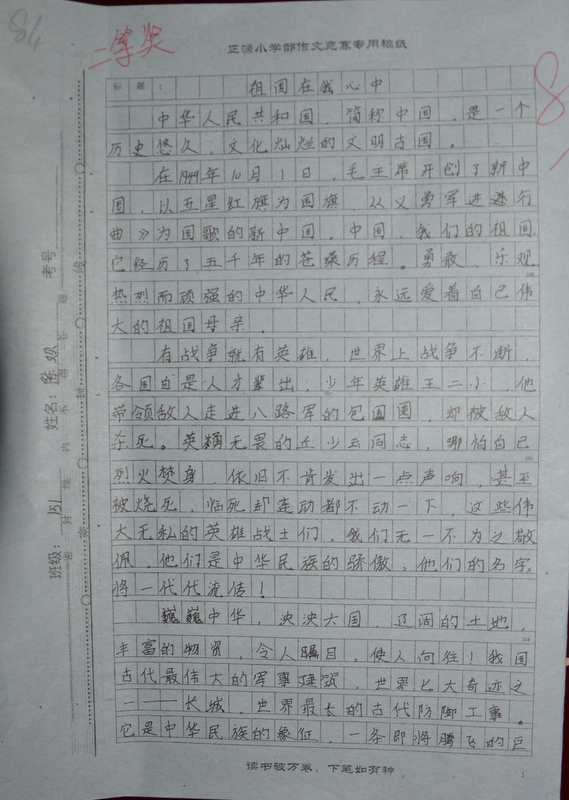 84
二等奖
正源小学部作文竞赛专用稿纸
8
标题：祖国在我心中
中华人民共和国，简称中国，是一个
历史悠久，文化灿烂的文明古国。
在1949年10月1日，毛主席开创了新中
国，以五星红旗为国旗，从义勇军进行
曲》为国歌的新中国。中国，我们的祖国，
它经历了五千年的苍桑历程。勇敢、乐观、
热烈而顽强的中华人民，永远爱着自己伟
大的祖国母亲。
有战争就有英雄，世界上战争不断，
各国自是人才辈出，少年英雄王二小，他
带领敌人走进八路军的包围圈，却被敌人
杀死。英勇无畏的丘少云同志，哪怕自己
烈火焚身，依旧不肯发出一点声响，甚至
被烧死，临死却连动都不动一下，这些伟
大无私的英雄战士们，我们无一不为之敬
佩，他们是中华民族的骄傲，他们的名字，
将一代代流传！
巍巍中华，泱泱大国，辽阔的土地，
丰富的物资，令人瞩目，使人向往！我国
古代最伟大的军事建筑，世界七大奇迹之
一——长城，世界最长的古代防御工事。
它是中华民族的象征，一条即将腾飞的巨
读书破万卷，下笔如有神
1
班级：151
姓名：陈观
考号
密封线内不得答题